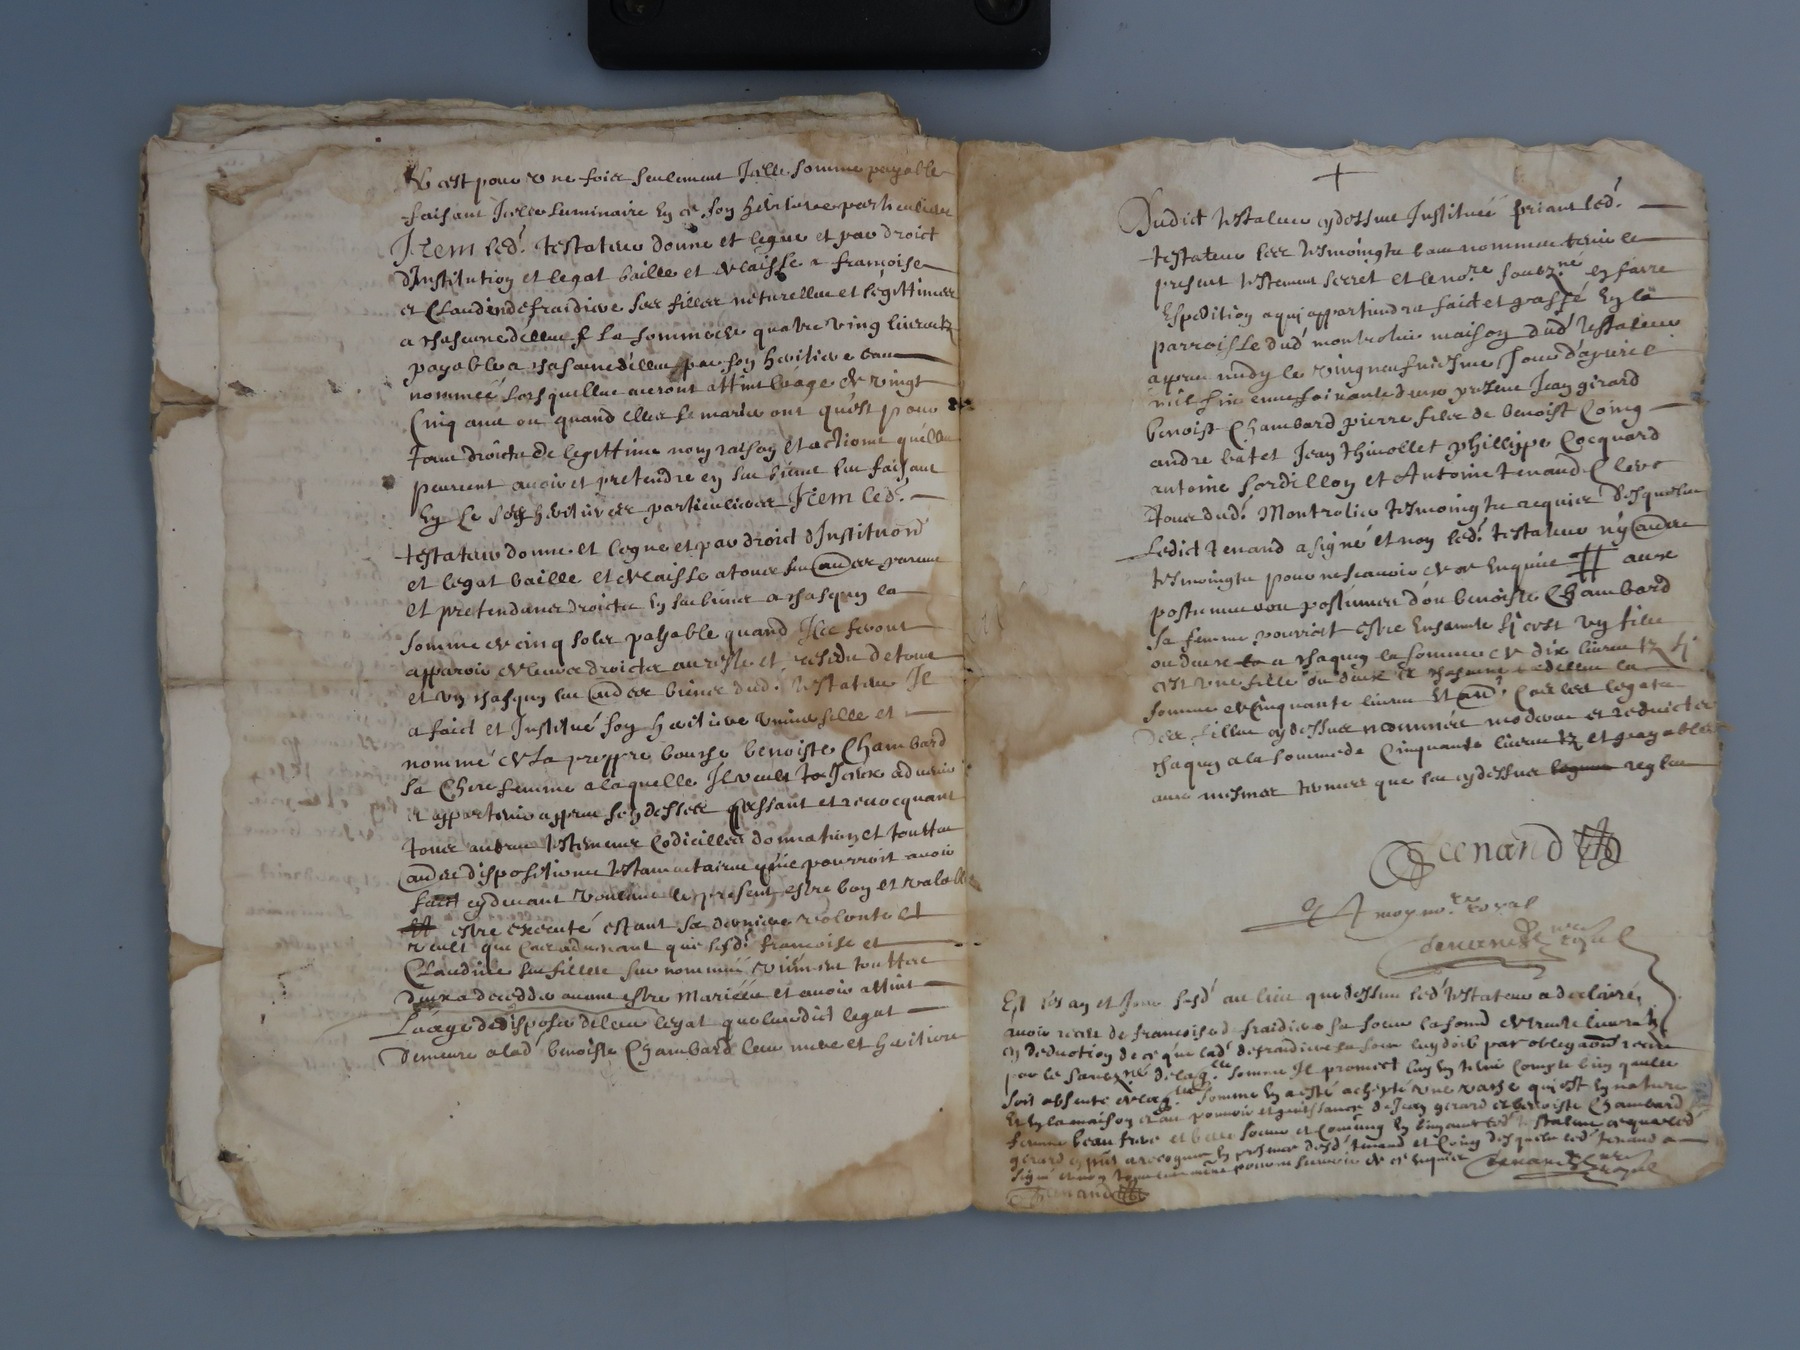 & cest pour une fois seulement Icelle somme payable
faisant Icelle luminaire En ce son heritiere particuliere
Item led.t testateur donne et legue et par droict
dInstitution et legat baille et delaisse a françoise
et Claudine defraidieve ses filles naturelles et legittimes
a chascune d'elles la somme de quatre ving livres tz
payable a chascune d'elles par son heritiere bas
nommée lors quelles auront attint leage de vingt
Cinq ans ou quand elles se marieront qu'est pour
tous droicts de legittime nom raison et actions qu'elles
peuvent avoir et pretendre en ses biens les faisant
En ce ses heritieres particulieres Item led.t
testateur donne et legue et par droict dInstituon
et legat baille et delaisse a tous ses aues parens
et pretendans droicts En ses biens a chasqun la
somme de cinq sols payable quand Ilz feront
apparoir de leurs droicts au reste et residu de tous
et un chasqun ses aues biens dud.t testateur Il
a faict et Institué son heritiere universelle et
nommé de sa propre bouche benoiste Chambard
sa Chere femme a laquelle Il veult advenir
et appartenir appres son desses Cassant et revocquant
tous autres testemens Codicilles donnation et touttes
aues dispositions testamentaires quil pourroit avoir
faict cydevant voulant le present estre bon et valable
estre executé estant sa derniere volonte Et
veult que Cas advenant que lesd. françoise et
Claudine ses filles sus nommées viennent touttes
deux a decedder avant estre mariées et avoir attint
Laage de disposer de leur legat que leurdict legat
demeure a lad.t benoiste Chambard leur mere et heritiere
+
Dudict testateur cydessus Instituée priant led.t
testateur les tesmoingts bas nommes tenir le
present testement secret et le no.re soubz.né en faire
Expedition a qui appartiendra faict et passé En la
parroisse dud.t montrolier maison dud.t testateur
appres midy le vingneufviesme Jour dapvril
mil six cens soixante deux presens Jean girard
benoist Chambard pierre filz de benoist Coing
andre batet Jean thivollet phillippe Cocquard
antoine sordillon et Antoine tenand Clerc
tous dud.t Montrolier tesmoingts requis desquelz
Ledict tenand a signé et non led.t testateur ny aues
tesmoingts pour ne scavoir de ce Enquis # aux
postumes ou postumes dou benoiste Chambard
sa femme pourroit estre Enceinte si cest un filz
ou deux a chaqun la somme de dix livres tz si
cest une fille ou deux a chascune delles la
somme de Cinquante livres Et aud.t Cas les legats
des filles cydessus nommées moderes et reduicts
chaqun a la somme de Cinquante livres tz et payables
aux mesmes termes que les cydessus legues regles
Tenand
Et A moy no.re royal
Tenand no.re royal
Et les an et Jour susd.t au lieu que dessus led.t testateur a declairé
avoir receu de françoise defraidieve sa soeur la somme de trente livres tz
En deduction de ce que lad.t defraidieve sa soeur luy doib par obligaon receue
par le soubz.né de laq.lle somme Il promet luy En tenir Compte bien quelle
soit absente de laq.lle somme En a esté achepté une vache qui est En nature
Et En la maison et au pouvoir et puissance de Jean gerard et benoiste Chambard
femme beau frere et belle soeur
signé
Tenand no.re royal
Tenand